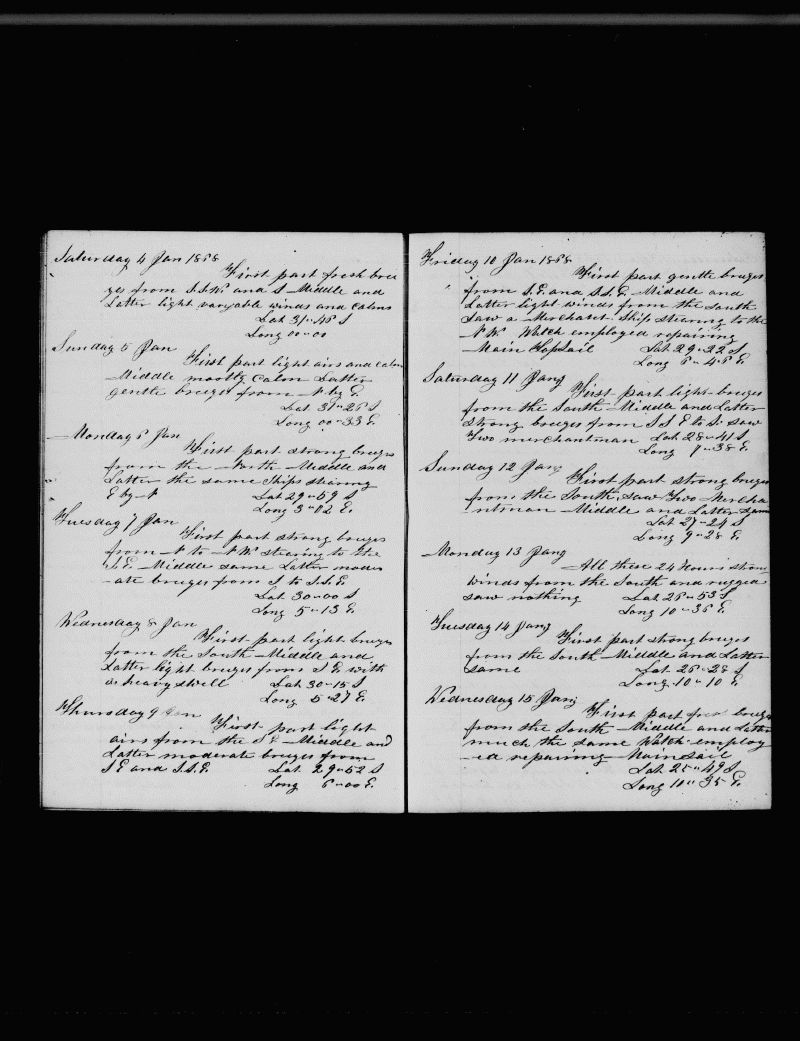 Saturday 4 Jan 1868
First part fresh bree
zes from S.S.W. and S Middle and
Latter light varyable winds and calms
Lat 31"45 S
Long 00"00
Sunday 5 Jan
First part light airs and calm
Middle mostly calm Latter
gentle breezes from N by E.
Lat 31"26 S
Long 00"33 E.
Monday 6 Jan
First part strong breezes
from the North Middle and
Latter the same Ships stearing
E by N Lat 29"59 S
Long 3"02 E.
Tuesday 7 Jan
First part strong breezes
from N to NW stearing to the
S.E. Middle same Latter moder
ate breezes from S to S.S.E
Lat 30"00 S
Long 5"13 E.
Wednesday 8 Jan
First part light breezes
from the South Middle and
Latter light breezes from S E. with
a heavy swell Lat 30"15 S
Long 5"27 E.
Thursday 9 Jan
First part light
airs from the SE Middle and
Latter moderate breezes from
S E and S.S.E. Lat 29"52 S
Long 6"00 E.
Friday 10 Jan 1868
First part gentle breezes
from S.E. and S.S.E. Middle and
Latter light winds from the South
Saw a Merchant Ship stearing to the
NW Watch employed repairing
Main TopSail Lat 29"22 S
Long 6"46 E.
Saturday 11 Jany
First part light breezes
from the South Middle and Latter
strong breezes from S S E to S. saw
Two merchantman Lat 28"41 S
Long 7"38 E.
Sunday 12 Jany
First part strong breezes
from the South, saw Two Mercha
ntman Middle and Latter same
Lat 27"24 S
Long 9"28 E.
Monday 13 Jany
All these 24 Hours strong
winds from the South and rugged
saw nothing Lat 26"53 S
Long 10"36 E.
Tuesday 14 Jany
First part strong breezes
from the South Middle and Latter
same Lat 26"28 S
Long 10"10 E.
Wednesday 15 Jany
First part breezes
from the South Middle and Latter
much the same Watch employ
ed repairing Mainsail
Lat 25"49 S
Long 10"35 E.